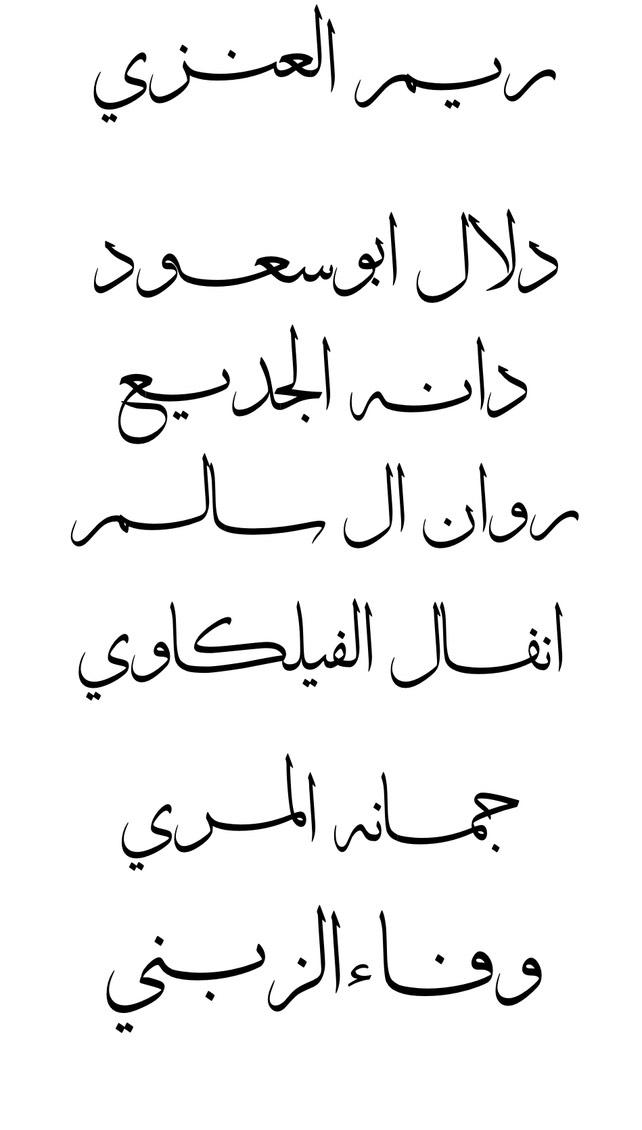 ريم العنزي
دلال ابوسعود
دانه الجديع
روان ال سالم
انفال الفيلكاوي
جمانه المري
وفاء الزبني